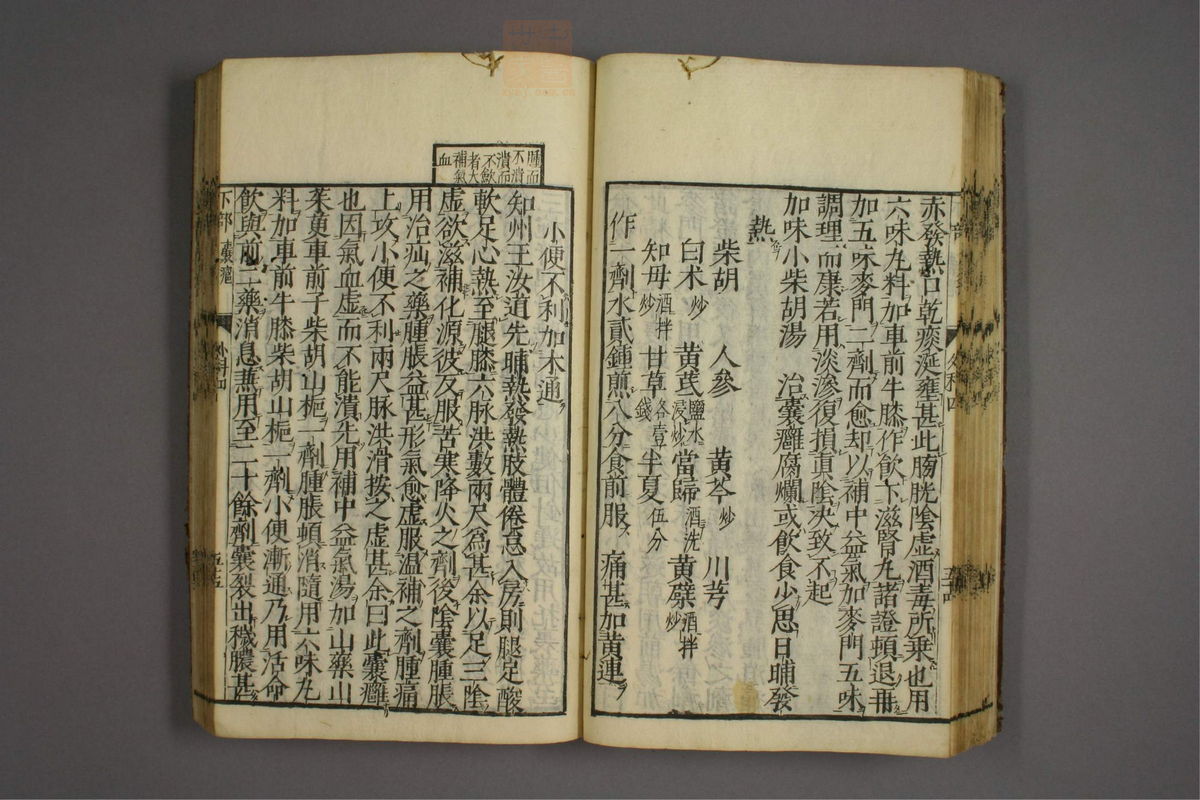 赤發熱口乾痰涎壅甚此膀胱陰虛酒毒所乗也用
六味丸料加車前牛膝作飲下滋腎丸諸證頓退再
加五味麥門二劑而愈却以補中益氣加麥門五味
調理而康若用淡滲復損真陰决致不起
加味小柴胡湯　治囊癰腐爛或飲食少思日晡發
熱
柴胡　人參　黄芩炒　川芎
白术炒　黄芪鹽水浸炒　當歸酒洗　黄蘗酒拌炒
知毋酒拌炒　甘草各壹錢　半夏伍分
作一劑水貳鍾煎八分食前服　痛甚加黄連
小便不利加木通
腫而
不潰
潰而
不歛
者大
補氣
血
知州王汝道先晡熱發熱肢體倦怠入房則腿足酸
軟足心熱至腿膝六脉洪數兩尺爲甚余以足三陰
虛欲滋補化源彼反服苦寒降火之劑後陰囊腫脹
用治疝之藥腫脹益甚形氣愈虛服温補之劑腫痛
上攻小便不利兩尺脉洪滑按之虛甚余曰此囊癰
也因氣血虛而不能潰先用補中益氣湯加山藥山
茱萸車前子柴胡山梔一劑腫脹頓消隨用六味丸
料加車前牛膝柴胡山梔一劑小便漸通乃用活命
飲與前二藥消息蕪用至二十餘劑囊裂出穢膿甚
下部　囊癰　外科四　五五